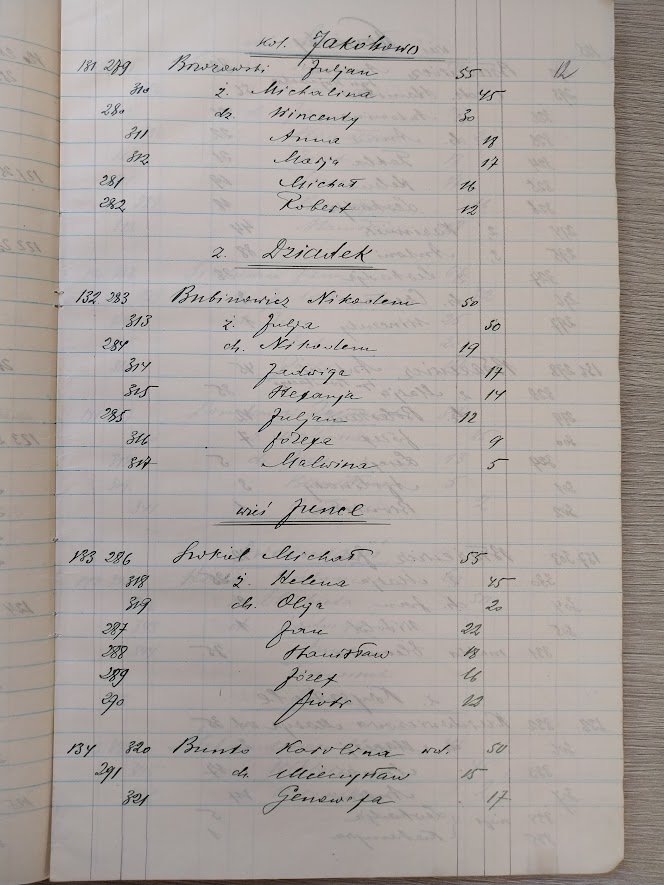 kol. Jakóbowo
12
181 279 Borowski Juljan 55
310 ż. Michalina 45
280 dz. Wincenty 30
311 Anna 18
312 Marja 17
281 Michał 16
282 Robert 12
z. Dziadek
132 283 Bubinowicz Nikodem 50
313 ż. Julja 50
284 ch. Nikodem 19
314 Jadwiga 17
315 Stefanja 14
285 Juljan 12
316 Józefa 9
317 Malwina 5
wieś Juncel
133 286 Michał 55
318 ż. Helena 45
319 ch. Olga 20
287 Jan 22
288 Stanisław 18
289 Józef 16
290 Piotr 12
134 320 Bunto Karolina wd. 50
291 ch. Mieczysław 15
321 Genowefa 17